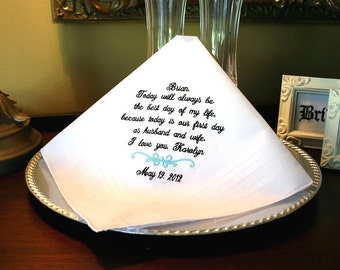 Brian,
Today will always be
the best day of my life,
because today is our first day
as husband and wife.
I love you, Karolyn
May 19, 2012
Bri